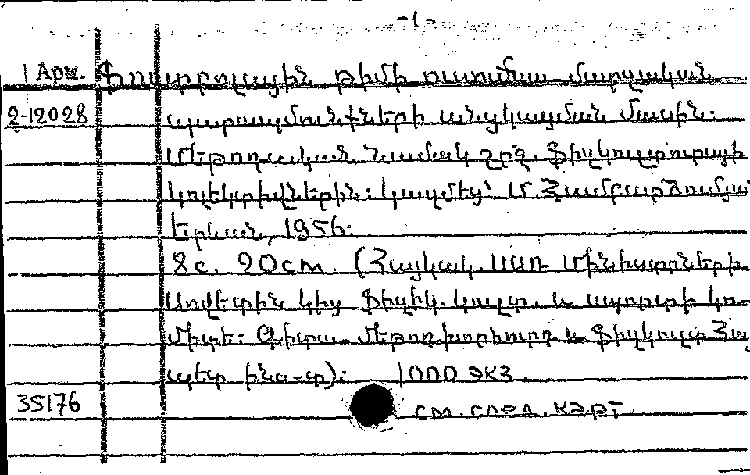 -1-
1 Арм. Ֆուտբոլային թիմի ուսումնա մարզական
2-12028 պարապմունքների անցկացման մասին:
Մեթոդական նամակ շրջ. ֆիզկուլտուրայի
կոլեկտիվներին: Կազմեց՝ Մ. Համբարձումյա
Երևան, 1956:
8 с. 20 см. (Հայկակ. ՍՍՌ Մինիստրների
Սովետին կից Ֆիզիկ. կուլտ. և սպորտի կո-
միտե: Գիտա-մեթոդ. խորհուրդ և Ֆիզկուլտ. Հա
պետ. ինս-տ): 1000 экз.
35176 см. след. карт.